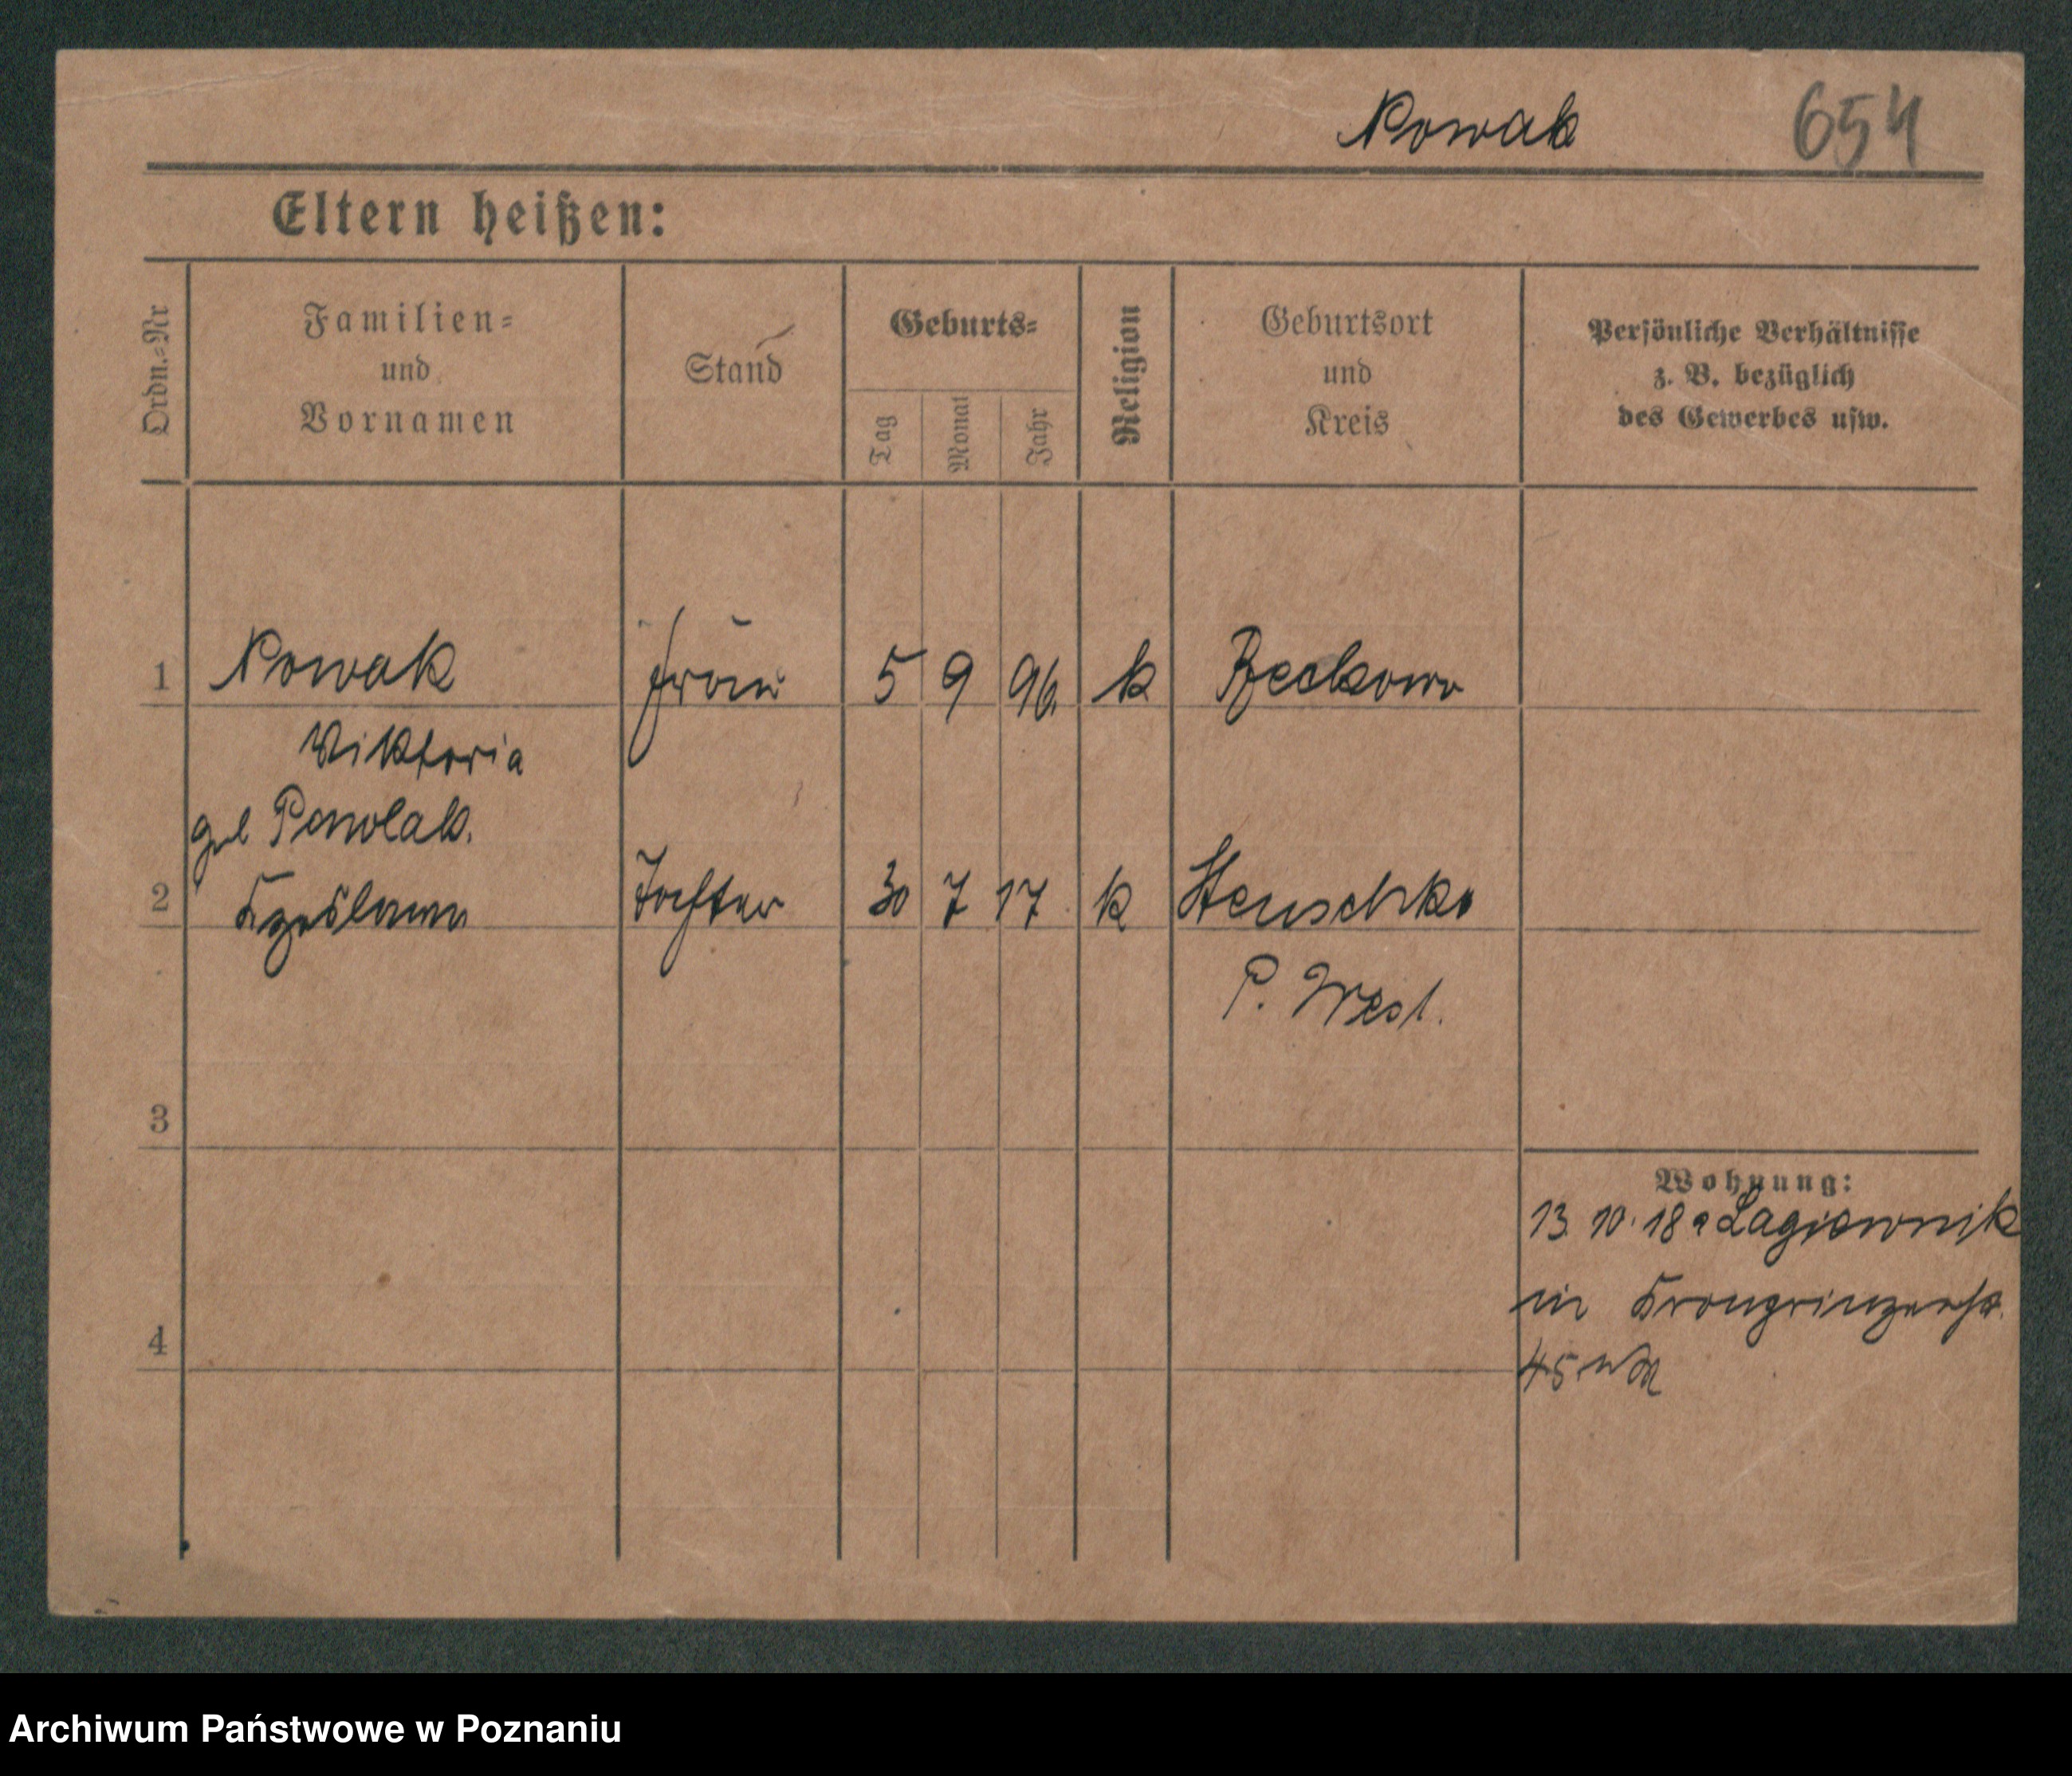 Nowak 654
Eltern heißen:
Ordn.-Nr
Familien-
und
Vornamen
Stand
Geburts-
Tag
Monat
Jahr
Religion
Geburtsort
und
Kreis
Persönliche Verhältnisse
z. B. bezüglich
des Gewerbes usw.
1 Nowak Frau 5 9 96. k
Viktoria
geb Pawlak.
2 Tochter 30 7 17 k
P. West.
3
Wohnung:
13. 10. 18 Lagiewnik
in Kronprinzenst.
4
45
Archiwum Państwowe w Poznaniu